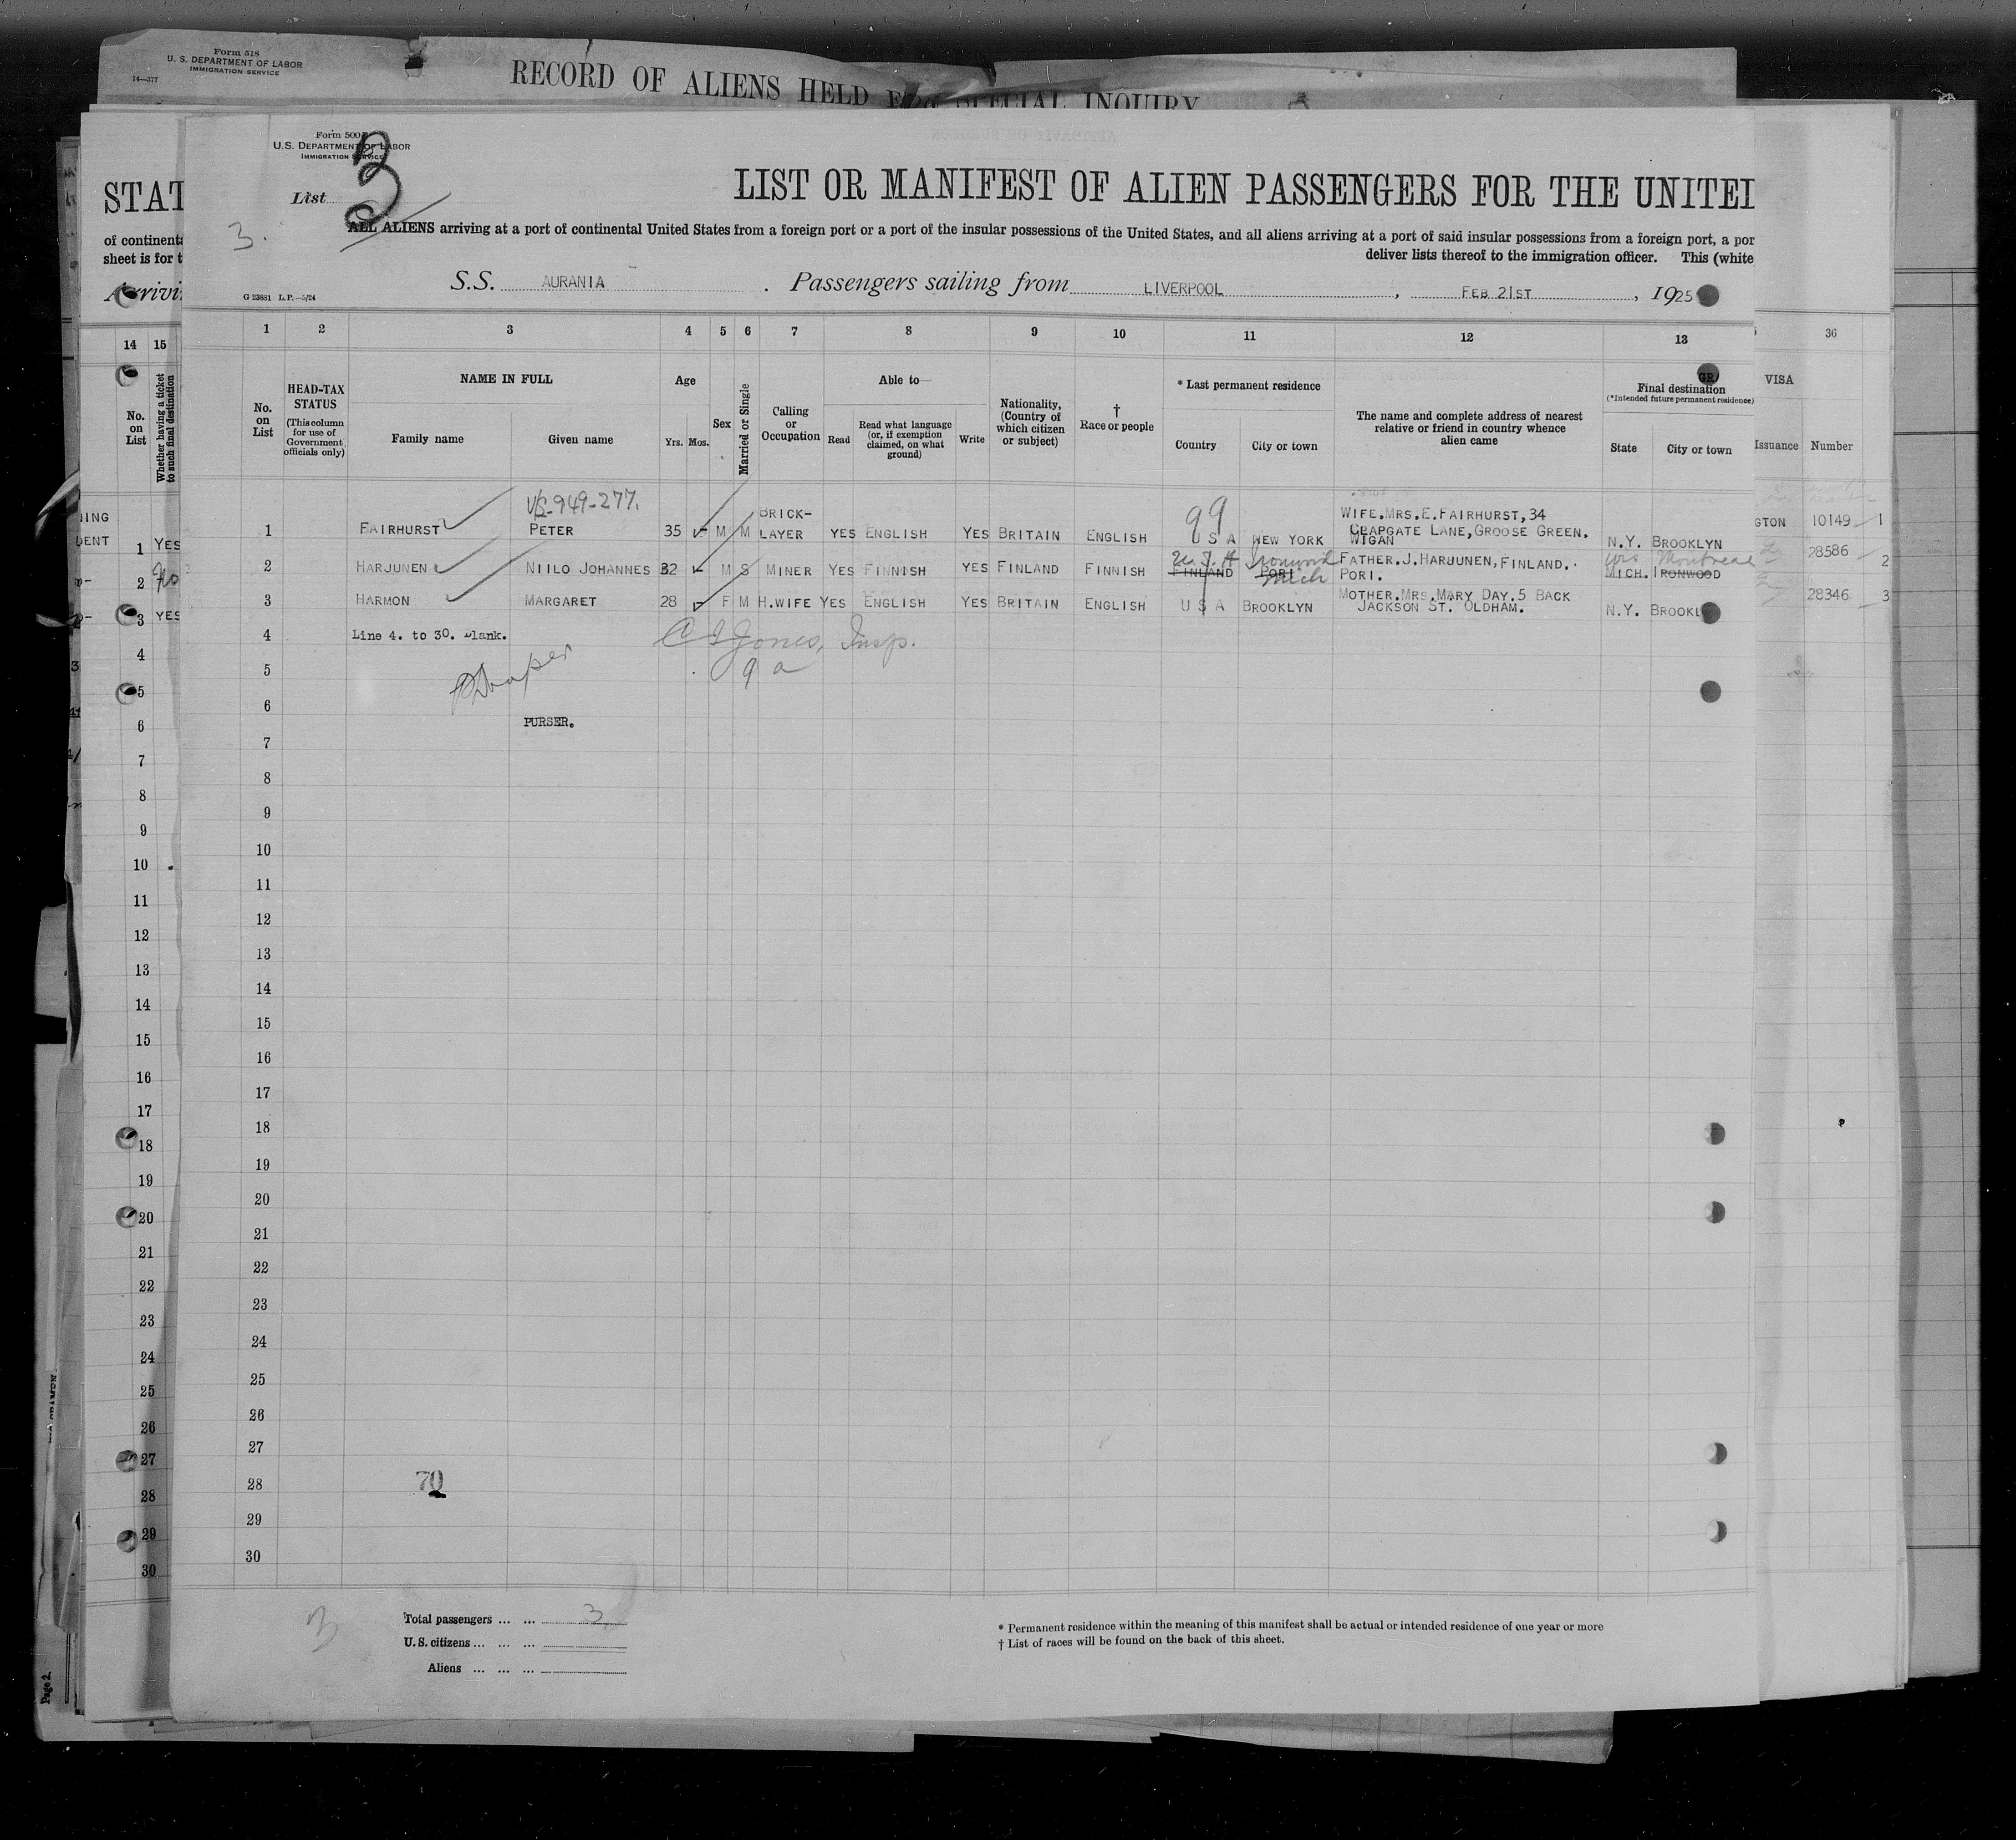 Form 518
U. S. DEPARTMENT OF LABOR
IMMIGRATION SERVICE
14—377
RECORD OF ALIENS HELD FOR SPECIAL INQUIRY
Form 500
U.S. DEPARTMENT OF LABOR
IMMIGRATION SERVICE
List 3
3.
LIST OR MANIFEST OF ALIEN PASSENGERS FOR THE UNITED
ALL ALIENS arriving at a port of continental United States from a foreign port or a port of the insular possessions of the United States, and all aliens arriving at a port of said insular possessions from a foreign port, a por
deliver lists thereof to the immigration officer. This (white
S.S. AURANIA . Passengers sailing from LIVERPOOL , FEB 21ST , 1925
G 23881 L.P.—5/24
STAT
of continent
sheet is for t
Arrivi
1 2 3 4 5 6 7 8 9 10 11 12 13
No. on List
HEAD-TAX STATUS (This column for use of Government officials only)
NAME IN FULL
Family name Given name
Age
Yrs. Mos.
Sex
Married or Single
Calling or Occupation
Able to—
Read
Read what language (or, if exemption claimed, on what ground)
Write
Nationality, (Country of which citizen or subject)
† Race or people
* Last permanent residence
Country City or town
The name and complete address of nearest relative or friend in country whence alien came
Final destination
(*Intended future permanent residence)
State City or town
14 15
No. on List
Whether having a ticket to such final destination
36
VISA
Issuance Number
1 FAIRHURST PETER 35 M M BRICK-LAYER YES ENGLISH YES BRITAIN ENGLISH U S A NEW YORK WIFE.MRS.E.FAIRHURST,34 CLAPGATE LANE,GROOSE GREEN. WIGAN N.Y. BROOKLYN
99
GTON 10149 1
2 HARJUNEN NIILO JOHANNES 32 M S MINER YES FINNISH YES FINLAND FINNISH FINLAND PORI FATHER.J.HARJUNEN,FINLAND. PORI. MICH. IRONWOOD
Ironwood Mich
Wis Montreal
28586 2
3 HARMON MARGARET 28 F M H.WIFE YES ENGLISH YES BRITAIN ENGLISH U S A BROOKLYN MOTHER.MRS.MARY DAY.5 BACK JACKSON ST. OLDHAM. N.Y. BROOKL
28346 3
4 Line 4. to 30. Blank.
Jones, Insp.
5
6
PURSER.
7
8
9
10
11
12
13
14
15
16
17
18
19
20
21
22
23
24
25
26
27
28 70
29
30
1 YES
2 No
3 YES
4
5
6
7
8
9
10
11
12
13
14
15
16
17
18
19
20
21
22
23
24
25
26
27
28
29
30
3
Total passengers ... ... 3
U.S. citizens ... ... ...
Aliens ... ... ...
* Permanent residence within the meaning of this manifest shall be actual or intended residence of one year or more
† List of races will be found on the back of this sheet.
Page 2.